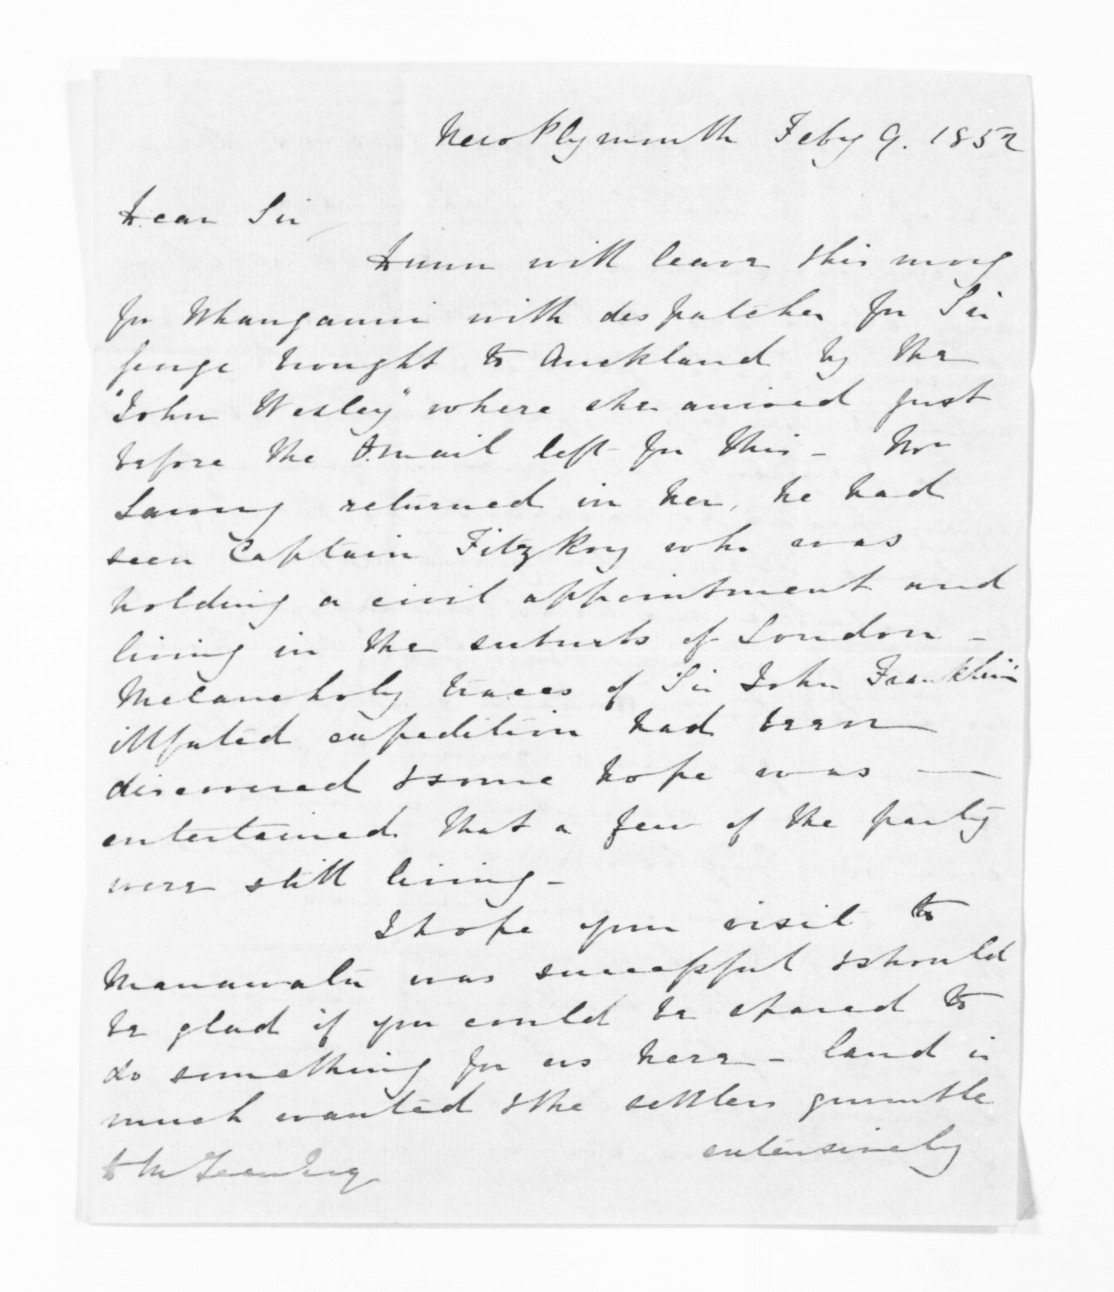 New Plymouth Feby 9. 1852
Dear Sir
Dunn will leave this morg
for Whanganui with despatches for Sir
George brought to Auckland by the
"John Wesley" where she arrived just
before the Omail left for this - Mr
Lawry returned in her, he had
seen Captain FitzRoy who was
holding a civil appointment and
living in the suburbs of London -
Melancholy traces of Sir John Franklin's
illfated expedition had been
discovered & some hope was -
entertained that a few of the party
were still living -
I hope your visit to
Manawatu was successful & should
be glad if you could be spared to
do something for us here - land is
much wanted & the settlers grumble
extensively
D McLean Esq